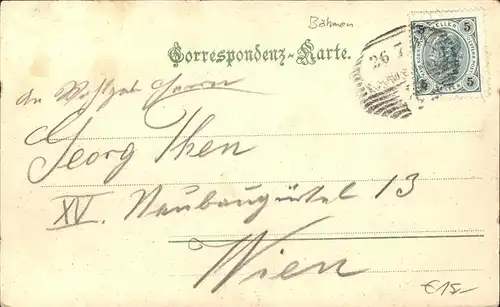 Böhmen
Correspondenz-Karte.
5 HELLER 5
26 7
An Wohlgeb. Herrn
Georg Then
XV. Neubaugürtel 13
Wien
€15.-